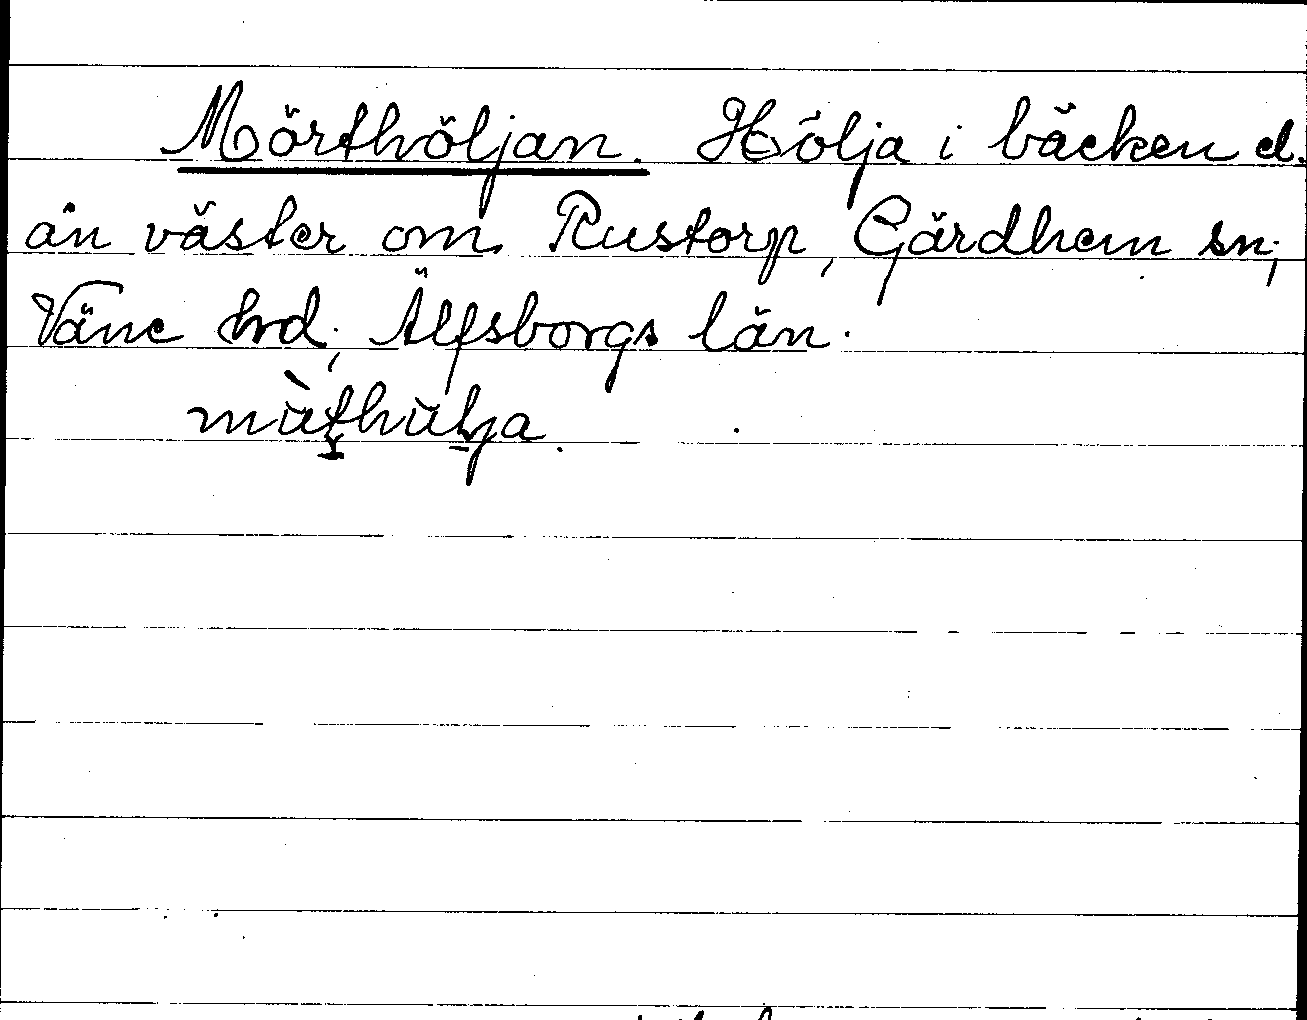 Mörthöljan. Hölja i bäcken el.
ån väster om Rustorp, Gärdhem sn;
Väne hrd; Älfsborgs län.